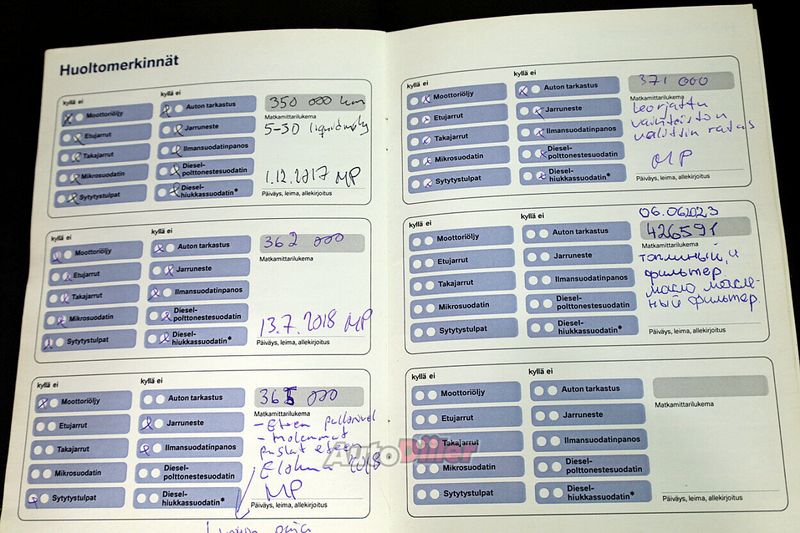 Huoltomerkinnät
kyllä ei
kyllä ei
Moottoriöljy
Auton tarkastus
Etujarrut
Jarruneste
Takajarrut
Ilmansuodatinpanos
Mikrosuodatin
Diesel-
polttonestesuodatin
Sytytystulpat
Diesel-
hiukkassuodatin*
350 000 km
Matkamittarilukema
5-30
1.12.2017 MP
Päiväys, leima, allekirjoitus
kyllä ei
kyllä ei
Moottoriöljy
Auton tarkastus
Etujarrut
Jarruneste
Takajarrut
Ilmansuodatinpanos
Mikrosuodatin
Diesel-
polttonestesuodatin
Sytytystulpat
Diesel-
hiukkassuodatin*
362 000
Matkamittarilukema
13.7.2018 MP
Päiväys, leima, allekirjoitus
kyllä ei
kyllä ei
Moottoriöljy
Auton tarkastus
Etujarrut
Jarruneste
Takajarrut
Ilmansuodatinpanos
Mikrosuodatin
Diesel-
polttonestesuodatin
Sytytystulpat
Diesel-
hiukkassuodatin*
365 000
Matkamittarilukema
- Eteen
- molemmat
puslat eteen
Elokuu 2018
MP
Päiväys, leima, allekirjoitus
kyllä ei
kyllä ei
Moottoriöljy
Auton tarkastus
Etujarrut
Jarruneste
Takajarrut
Ilmansuodatinpanos
Mikrosuodatin
Diesel-
polttonestesuodatin
Sytytystulpat
Diesel-
hiukkassuodatin*
371 000
Matkamittarilukema
korjattu
vaihteiston
valitsin ratas
MP
Päiväys, leima, allekirjoitus
kyllä ei
kyllä ei
Moottoriöljy
Auton tarkastus
Etujarrut
Jarruneste
Takajarrut
Ilmansuodatinpanos
Mikrosuodatin
Diesel-
polttonestesuodatin
Sytytystulpat
Diesel-
hiukkassuodatin*
06.062023
426591
Matkamittarilukema
фильтер
масло масле-
ный фильтер
Päiväys, leima, allekirjoitus
kyllä ei
kyllä ei
Moottoriöljy
Auton tarkastus
Etujarrut
Jarruneste
Takajarrut
Ilmansuodatinpanos
Mikrosuodatin
Diesel-
polttonestesuodatin
Sytytystulpat
Diesel-
hiukkassuodatin*
Matkamittarilukema
Päiväys, leima, allekirjoitus
AutoDiler